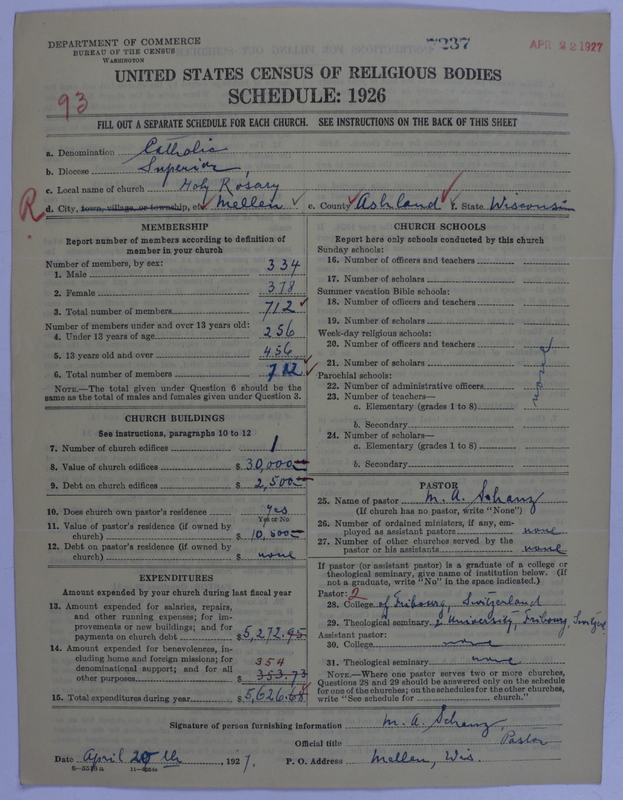 DEPARTMENT OF COMMERCE
BUREAU OF THE CENSUS
WASHINGTON
7237
APR 22 1927
UNITED STATES CENSUS OF RELIGIOUS BODIES
SCHEDULE: 1926
93
FILL OUT A SEPARATE SCHEDULE FOR EACH CHURCH. SEE INSTRUCTIONS ON THE BACK OF THIS SHEET
a. Denomination Catholic
b. Diocese Superior,
c. Local name of church Holy Rosary
R
d. City, town, village, or township, etc. Mellen e. County Ashland f. State Wisconsin
MEMBERSHIP
Report number of members according to definition of
member in your church
Number of members, by sex:
1. Male 334
2. Female 378
3. Total number of members 712
Number of members under and over 13 years old:
4. Under 13 years of age 256
5. 13 years old and over 456
6. Total number of members 712
NOTE.—The total given under Question 6 should be the
same as the total of males and females given under Question 3.
CHURCH BUILDINGS
See instructions, paragraphs 10 to 12
7. Number of church edifices 1
8. Value of church edifices $ 30,000
9. Debt on church edifices $ 2,500
10. Does church own pastor's residence yes
Yes or No
11. Value of pastor's residence (if owned by
church) $ 10,500
12. Debt on pastor's residence (if owned by
church) $ none
EXPENDITURES
Amount expended by your church during last fiscal year
13. Amount expended for salaries, repairs,
and other running expenses; for im-
provements or new buildings; and for
payments on church debt $ 5,272.95
14. Amount expended for benevolences, in-
cluding home and foreign missions; for
denominational support; and for all
other purposes 354
$ 353.73
15. Total expenditures during year $ 5,626.68
CHURCH SCHOOLS
Report here only schools conducted by this church
Sunday schools:
16. Number of officers and teachers
17. Number of scholars
Summer vacation Bible schools:
18. Number of officers and teachers
19. Number of scholars
Week-day religious schools:
20. Number of officers and teachers
21. Number of scholars
Parochial schools:
22. Number of administrative officers
23. Number of teachers—
a. Elementary (grades 1 to 8)
b. Secondary
24. Number of scholars—
a. Elementary (grades 1 to 8)
b. Secondary
none
PASTOR
25. Name of pastor M. A. Schanz
(If church has no pastor, write "None")
26. Number of ordained ministers, if any, em-
ployed as assistant pastors none
27. Number of other churches served by the
pastor or his assistants none
If pastor (or assistant pastor) is a graduate of a college or
theological seminary, give name of institution below. (If
not a graduate, write "No" in the space indicated.)
Pastor: 2
28. College of Fribourg, Switzerland
29. Theological seminary University, Fribourg, Switz
Assistant pastor:
30. College none
31. Theological seminary none
NOTE.—Where one pastor serves two or more churches,
Questions 28 and 29 should be answered only on the schedule
for one of the churches; on the schedules for the other churches,
write "See schedule for church."
Signature of person furnishing information M. A. Schanz,
Official title Pastor
Date April 20th, 1927. P. O. Address Mellen, Wis.